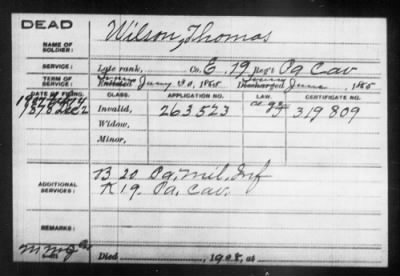 DEAD
NAME OF SOLDIER: Wilson, Thomas
SERVICE: Late rank, Co. E, 19 Reg't Pa Cav
TERM OF SERVICE: Enlisted 1865 Discharged June, 1865
DATE OF FILING. CLASS. APPLICATION NO. LAW. CERTIFICATE NO.
1878 Dec 2 Invalid, 263,523 319 809
Widow,
Minor,
ADDITIONAL SERVICES: B 20 Pa. mil. Inf
K 19. Pa. Cav.
REMARKS:
Died, 190, at